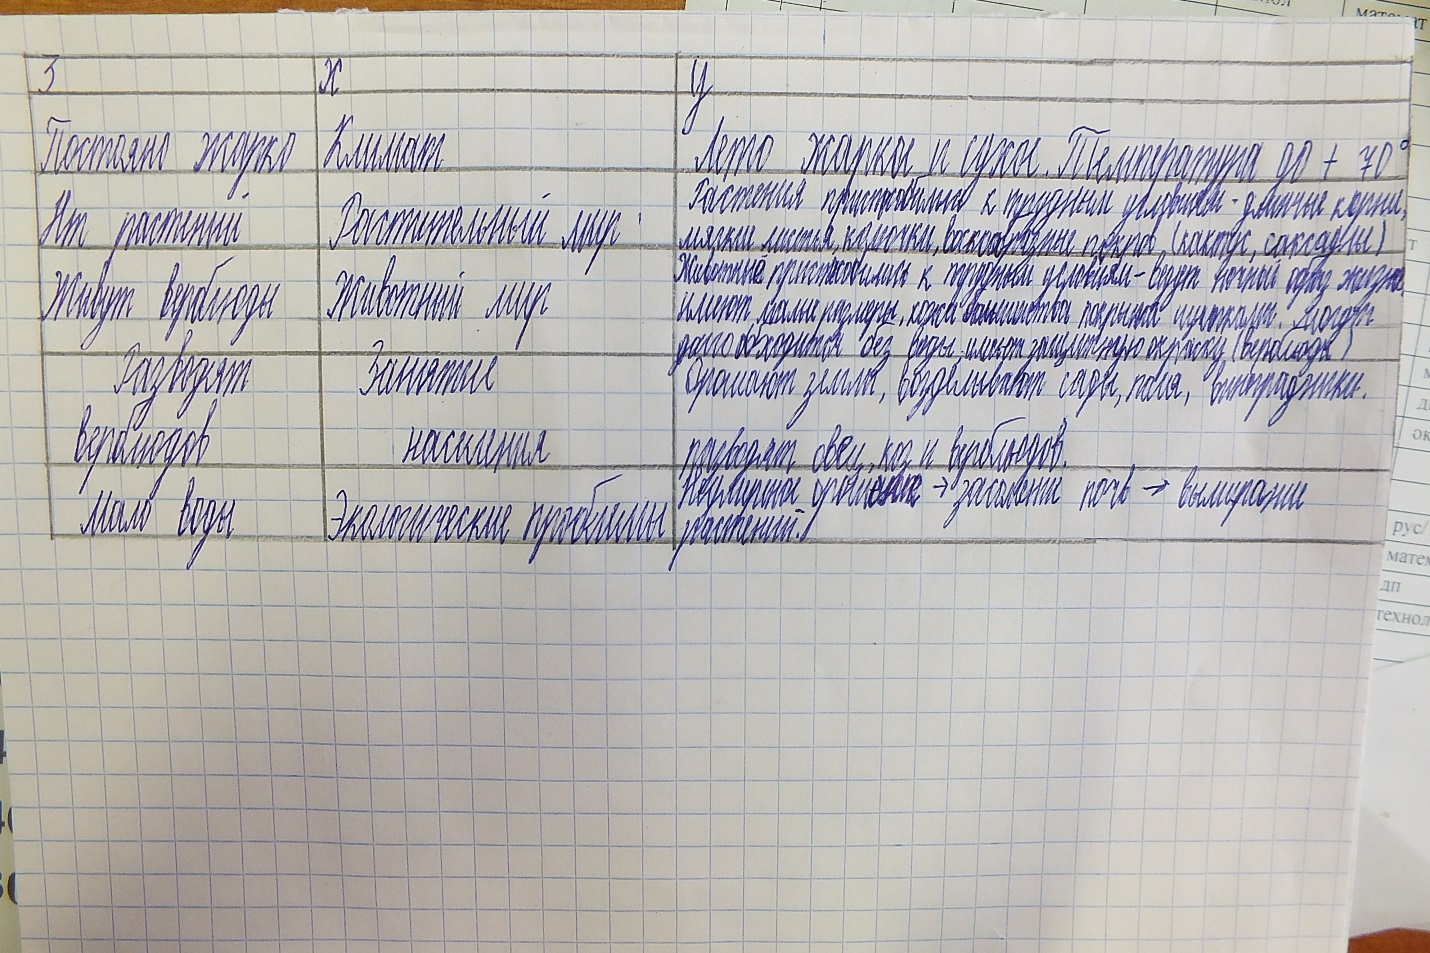 З Х У
Постояно жарко Климат Лето жаркое и сухое. Температура до +70°
Нет растений Растительный мир Растения приспособились к трудным условиям - длинные корни,
мягкие листья, колючки, воскообразные покров, (кактус, саксаулы)
Живут верблюды Животный мир Животные приспособились к трудным условиям - ведут ночный образ жизни.
имеют малые размеры, кожа большинства покрыта Могут
долго обходится без воды имеют защитную окраску (верблюды)
Разводят Занятие Орошают земли, возделывают сады, поля, виноградники.
верблюдов населения разводят овец, коз и верблюдов.
Мало воды Экологические проблемы Неумереное орошение → засоление почв → вымирание
растений.
матема
т
эк
рус/
матем
дп
технол